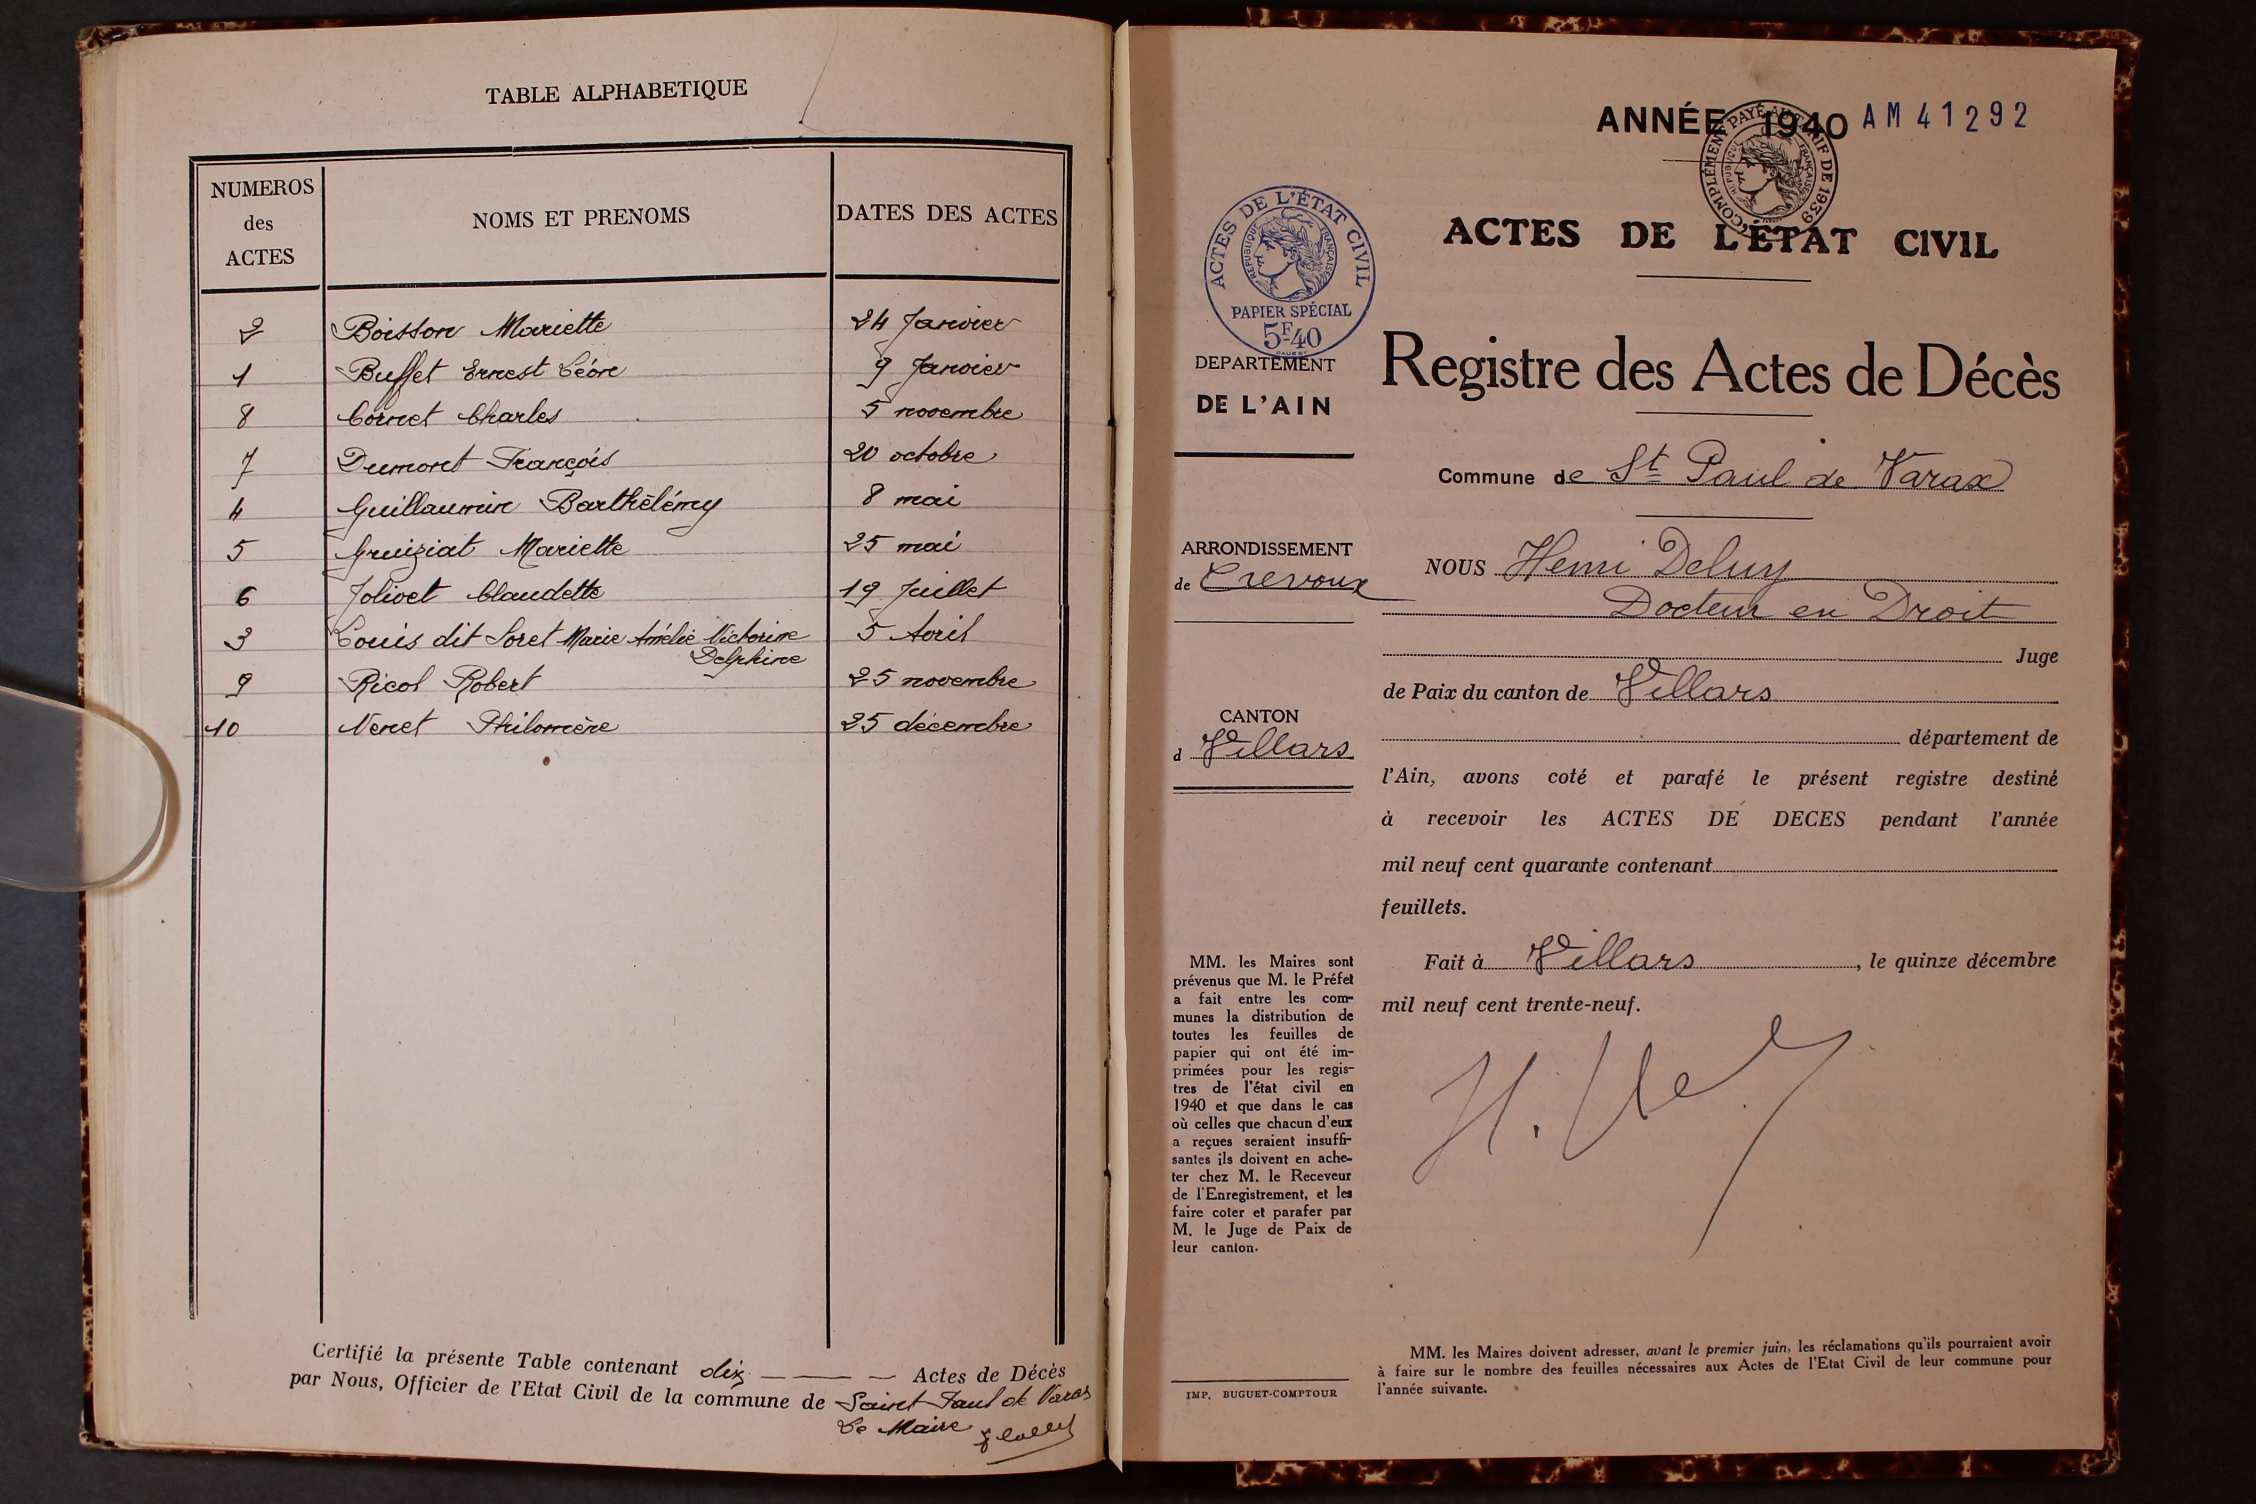 TABLE ALPHABETIQUE
NUMEROS des ACTES NOMS ET PRENOMS DATES DES ACTES
2 Boisson Mariette 24 Janvier
1 Buffet Ernest Léon 9 Janvier
8 Cornet Charles 5 novembre
7 Dumont François 20 octobre
4 Guillaumin Barthélémy 8 mai
5 Gruiziat Mariette 25 mai
6 Jolivet Claudette 19 Juillet
3 Louis dit Soret Marie Amélie Victorine 5 Avril
Delphine
9 Ricol Robert 25 novembre
10 Venet Philomène 25 décembre
Certifié la présente Table contenant dix Actes de Décès
par Nous, Officier de l'Etat Civil de la commune de Saint Paul de Varax
Le Maire
ANNÉE 1940 AM 41292
COMPLÉMENT PAYÉ AU TARIF DE 1939
RÉPUBLIQUE FRANÇAISE
ACTES DE L'ÉTAT CIVIL
ACTES DE L'ÉTAT CIVIL
RÉPUBLIQUE FRANÇAISE
PAPIER SPÉCIAL
5F40
DEPARTEMENT
DE L'AIN
Registre des Actes de Décès
Commune de St Paul de Varax
ARRONDISSEMENT
de Trevoux
CANTON
d Villars
NOUS Henri Deluy
Docteur en Droit
Juge
de Paix du canton de Villars
département de
l'Ain, avons coté et parafé le présent registre destiné
à recevoir les ACTES DE DECES pendant l'année
mil neuf cent quarante contenant
feuillets.
Fait à Villars, le quinze décembre
mil neuf cent trente-neuf.
MM. les Maires sont
prévenus que M. le Préfet
a fait entre les com-
munes la distribution de
toutes les feuilles de
papier qui ont été im-
primées pour les regis-
tres de l'état civil en
1940 et que dans le cas
où celles que chacun d'eux
a reçues seraient insuffi-
santes ils doivent en ache-
ter chez M. le Receveur
de l'Enregistrement, et les
faire coter et parafer par
M. le Juge de Paix de
leur canton.
IMP. BUGUET-COMPTOUR
MM. les Maires doivent adresser, avant le premier juin, les réclamations qu'ils pourraient avoir
à faire sur le nombre des feuilles nécessaires aux Actes de l'Etat Civil de leur commune pour
l'année suivante.